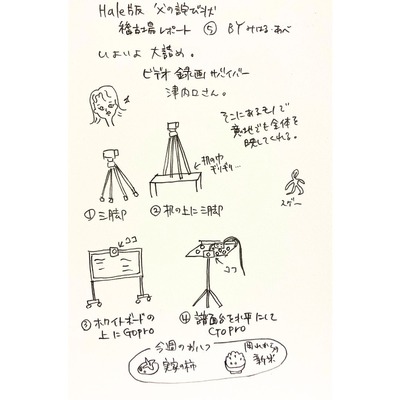 Hale版 父の詫び状
稽古場レポート ⑤ BY みはる・あべ
いよいよ 大詰め。
ビデオ 録画 サバイバー
津内口さん。
そこにあるモノで
意地でも全体を
映してくれる。
机の巾
ギリギリ…
① 三脚
② 机の上に三脚
スゲー
ココ
ココ
③ ホワイトボードの
上に GoPro
④ 譜面台を水平にして
GoPro
今週の
実家の柿
新米